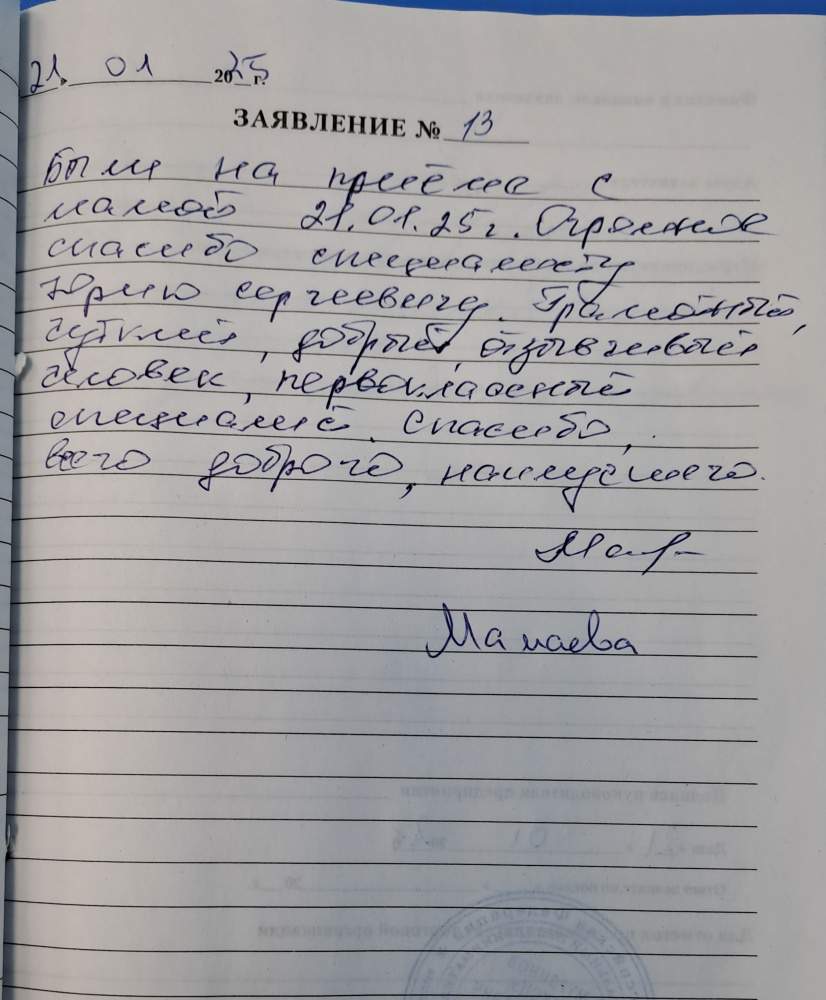 21. 01 2025 г.
ЗАЯВЛЕНИЕ № 13
Были на приёме с
мамой 21.01.25г. Огромное
спасибо специалисту
Юрию Сергеевичу. Грамотный,
чуткий, добрый, отзывчивый
человек, первоклассный
специалист. Спасибо,
всего доброго, наилучшего.
Мамаева